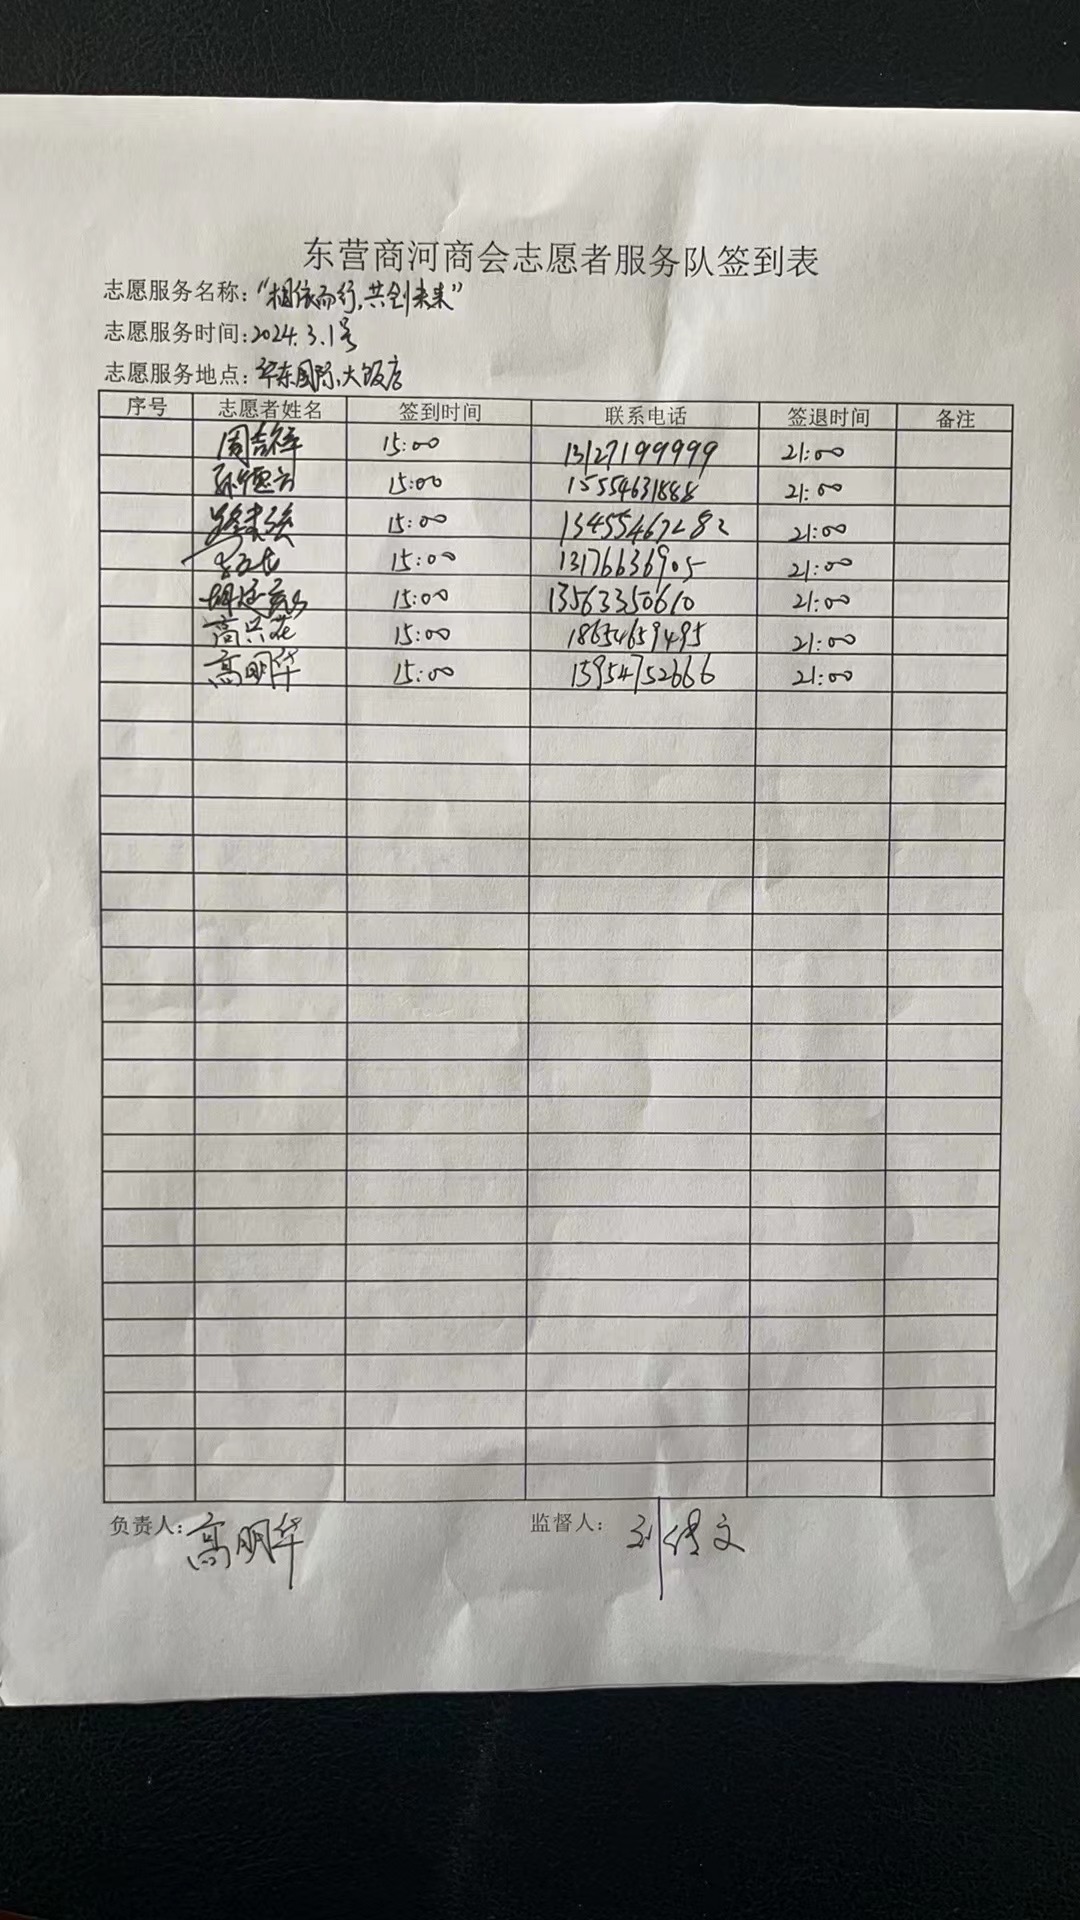 东营商河商会志愿者服务队签到表
志愿服务名称：“相依而行，共创未来”
志愿服务时间：2024.3.1号
志愿服务地点：华东国际大饭店
序号 志愿者姓名 签到时间 联系电话 签退时间 备注
周吉祥 15:00 13127199999 21:00
孙德方 15:00 15554631888 21:00
15:00 13455467282 21:00
15:00 13176636905 21:00
15:00 13563350610 21:00
高兴花 15:00 18654659495 21:00
高明华 15:00 15954752666 21:00
负责人：高明华 监督人：刘传文